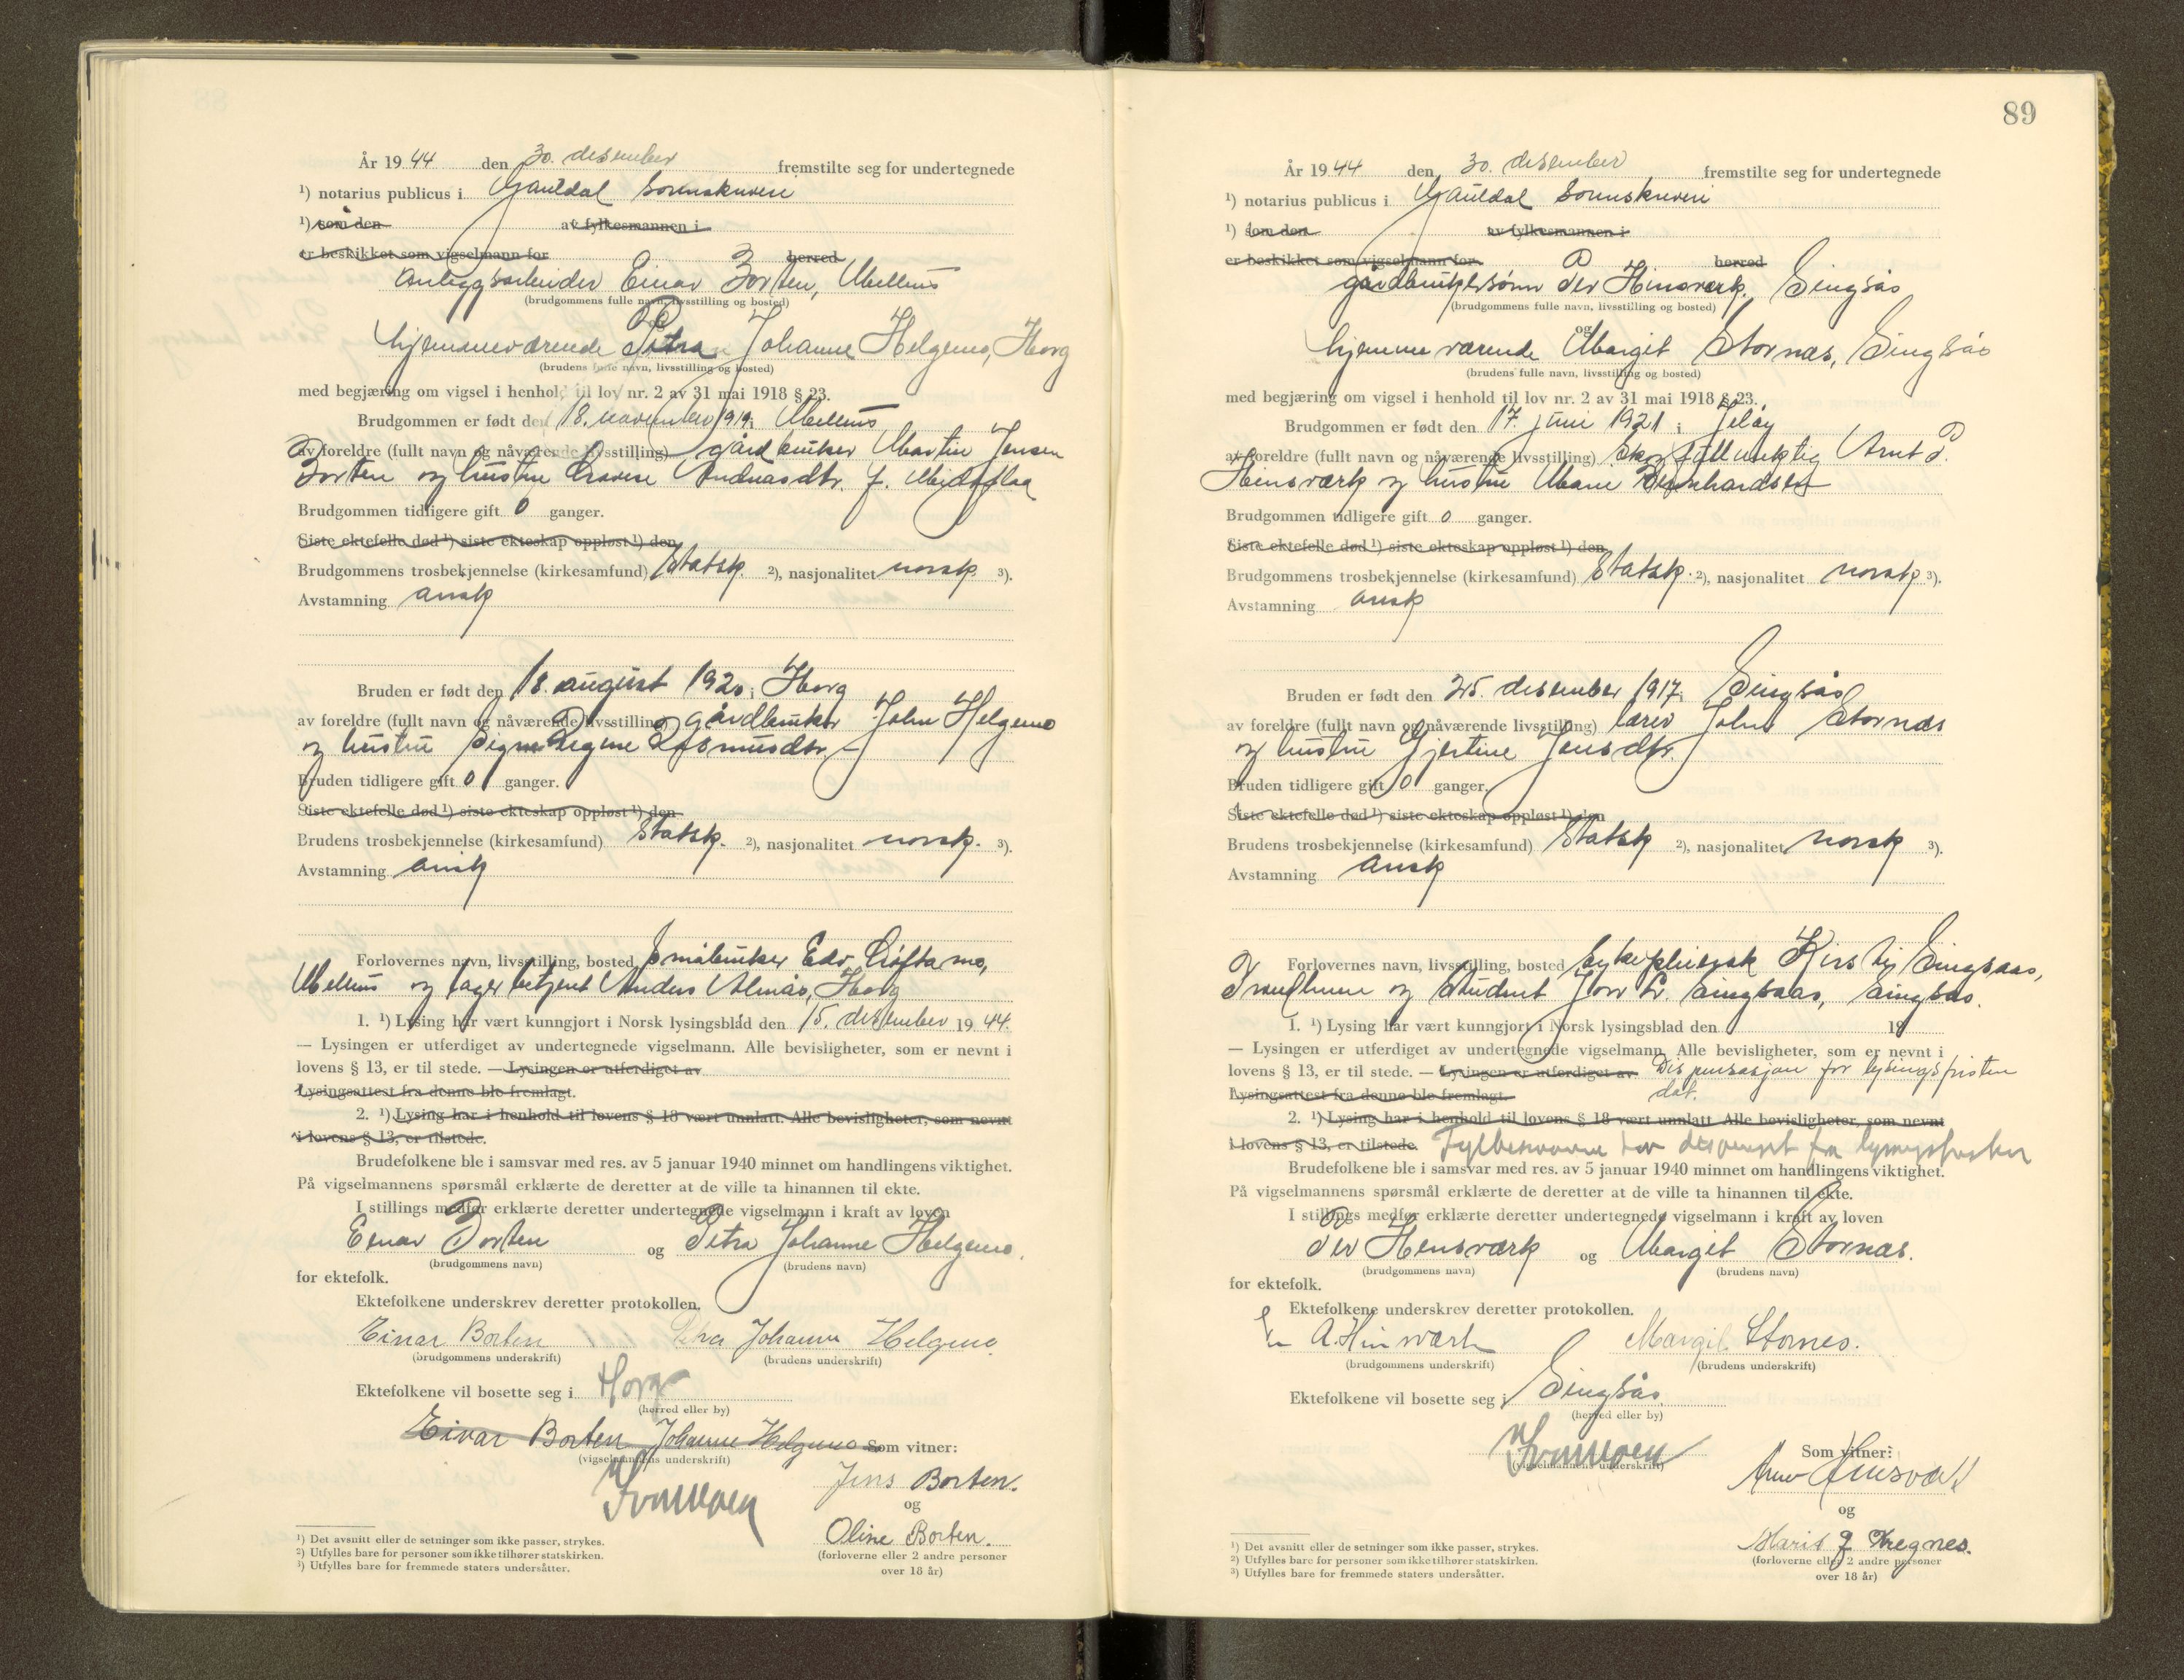 År 19 44 den 30. desember fremstilte seg for undertegnede
¹) notarius publicus i Gauldal sorenskriveri
¹) som den av fylkesmannen i
er beskikket som vigselmann for herred
Anleggsarbeider Einar Borten, Melhus
(brudgommens fulle navn, livsstilling og bosted)
og
hjemmeværende Petra Johanne Helgemo, Horg
(brudens fulle navn, livsstilling og bosted)
med begjæring om vigsel i henhold til lov nr. 2 av 31 mai 1918 § 23.
Brudgommen er født den 18. november 1919 i Melhus
av foreldre (fullt navn og nåværende livsstilling) gårdbruker Martin Jensen
Borten og hustru Andreasdtr. f.
Brudgommen tidligere gift 0 ganger.
Siste ektefelle død ¹) siste ekteskap oppløst ¹) den
Brudgommens trosbekjennelse (kirkesamfund) Statsk. ²), nasjonalitet norsk ³).
Avstamning arisk
Bruden er født den 18. august 1920 i Horg
av foreldre (fullt navn og nåværende livsstilling) gårdbruker John Helgemo
og hustru Signe Rasmusdtr.
Bruden tidligere gift 0 ganger.
Siste ektefelle død ¹) siste ekteskap oppløst ¹) den
Brudens trosbekjennelse (kirkesamfund) Statsk. ²), nasjonalitet norsk. ³).
Avstamning arisk
Forlovernes navn, livsstilling, bosted småbruker Edv. Løftamo,
Melhus og lagerbetjent Anders Almås, Horg
1. ¹) Lysing har vært kunngjort i Norsk lysingsblad den 15. desember 19 44.
— Lysingen er utferdiget av undertegnede vigselmann. Alle bevisligheter, som er nevnt i
lovens § 13, er til stede. — Lysingen er utferdiget av
Lysingsattest fra denne ble fremlagt.
2. ¹) Lysing har i henhold til lovens § 18 vært unnlatt. Alle bevisligheter, som nevnt
i lovens § 13, er tilstede.
Brudefolkene ble i samsvar med res. av 5 januar 1940 minnet om handlingens viktighet.
På vigselmannens spørsmål erklærte de deretter at de ville ta hinannen til ekte.
I stillings medfør erklærte deretter undertegnede vigselmann i kraft av loven
Einar Borten og Petra Johanne Helgemo.
(brudgommens navn) (brudens navn)
for ektefolk.
Ektefolkene underskrev deretter protokollen.
Einar Borten Petra Johanne Helgemo.
(brudgommens underskrift) (brudens underskrift)
Ektefolkene vil bosette seg i Horg
(herred eller by)
Einar Borten Johanne Helgemo Som vitner:
(vigselmannens underskrift)
Jens Borten.
og
Oline Borten.
(forloverne eller 2 andre personer
over 18 år)
¹) Det avsnitt eller de setninger som ikke passer, strykes.
²) Utfylles bare for personer som ikke tilhører statskirken.
³) Utfylles bare for fremmede staters undersåtter.
89
År 19 44 den 30. desember fremstilte seg for undertegnede
¹) notarius publicus i Gauldal sorenskriveri
¹) som den av fylkesmannen i
er beskikket som vigselmann for herred
gårdbrukersønn Per Hinsverk, Singsås
(brudgommens fulle navn, livsstilling og bosted)
og
hjemmeværende Margit Stornæs, Singsås
(brudens fulle navn, livsstilling og bosted)
med begjæring om vigsel i henhold til lov nr. 2 av 31 mai 1918 § 23.
Brudgommen er født den 17. juni 1921 i Jeløy
av foreldre (fullt navn og nåværende livsstilling) Arnt P.
Hinsværk og hustru Marie Bernhardsen
Brudgommen tidligere gift 0 ganger.
Siste ektefelle død ¹) siste ekteskap oppløst ¹) den
Brudgommens trosbekjennelse (kirkesamfund) Statsk. ²), nasjonalitet norsk ³).
Avstamning arisk
Bruden er født den 25. desember 1917 i Singsås
av foreldre (fullt navn og nåværende livsstilling) lærer John Stornæs
og hustru Gjertine Jensdtr.
Bruden tidligere gift 0 ganger.
Siste ektefelle død ¹) siste ekteskap oppløst ¹) den
Brudens trosbekjennelse (kirkesamfund) Statsk ²), nasjonalitet norsk ³).
Avstamning arisk
Forlovernes navn, livsstilling, bosted sykepleierske Kirsti Singsaas,
Trondheim og student Jorr Singsaas, Singsås.
1. ¹) Lysing har vært kunngjort i Norsk lysingsblad den 19
— Lysingen er utferdiget av undertegnede vigselmann. Alle bevisligheter, som er nevnt i
lovens § 13, er til stede. — Lysingen er utferdiget av Dispensasjon for lysingsfristen
Lysingsattest fra denne ble fremlagt. dat.
2. ¹) Lysing har i henhold til lovens § 18 vært unnlatt. Alle bevisligheter, som nevnt
i lovens § 13, er tilstede. Fylkesmannen har dispensert fra lysingsfristen
Brudefolkene ble i samsvar med res. av 5 januar 1940 minnet om handlingens viktighet.
På vigselmannens spørsmål erklærte de deretter at de ville ta hinannen til ekte.
I stillings medfør erklærte deretter undertegnede vigselmann i kraft av loven
Per Hensværk og Margit Stornæs.
(brudgommens navn) (brudens navn)
for ektefolk.
Ektefolkene underskrev deretter protokollen.
A. Hinsværk Margit Stornes.
(brudgommens underskrift) (brudens underskrift)
Ektefolkene vil bosette seg i Singsås.
(herred eller by)
Som vitner:
(vigselmannens underskrift)
og
Marit J Kregnes.
(forloverne eller 2 andre personer
over 18 år)
¹) Det avsnitt eller de setninger som ikke passer, strykes.
²) Utfylles bare for personer som ikke tilhører statskirken.
³) Utfylles bare for fremmede staters undersåtter.